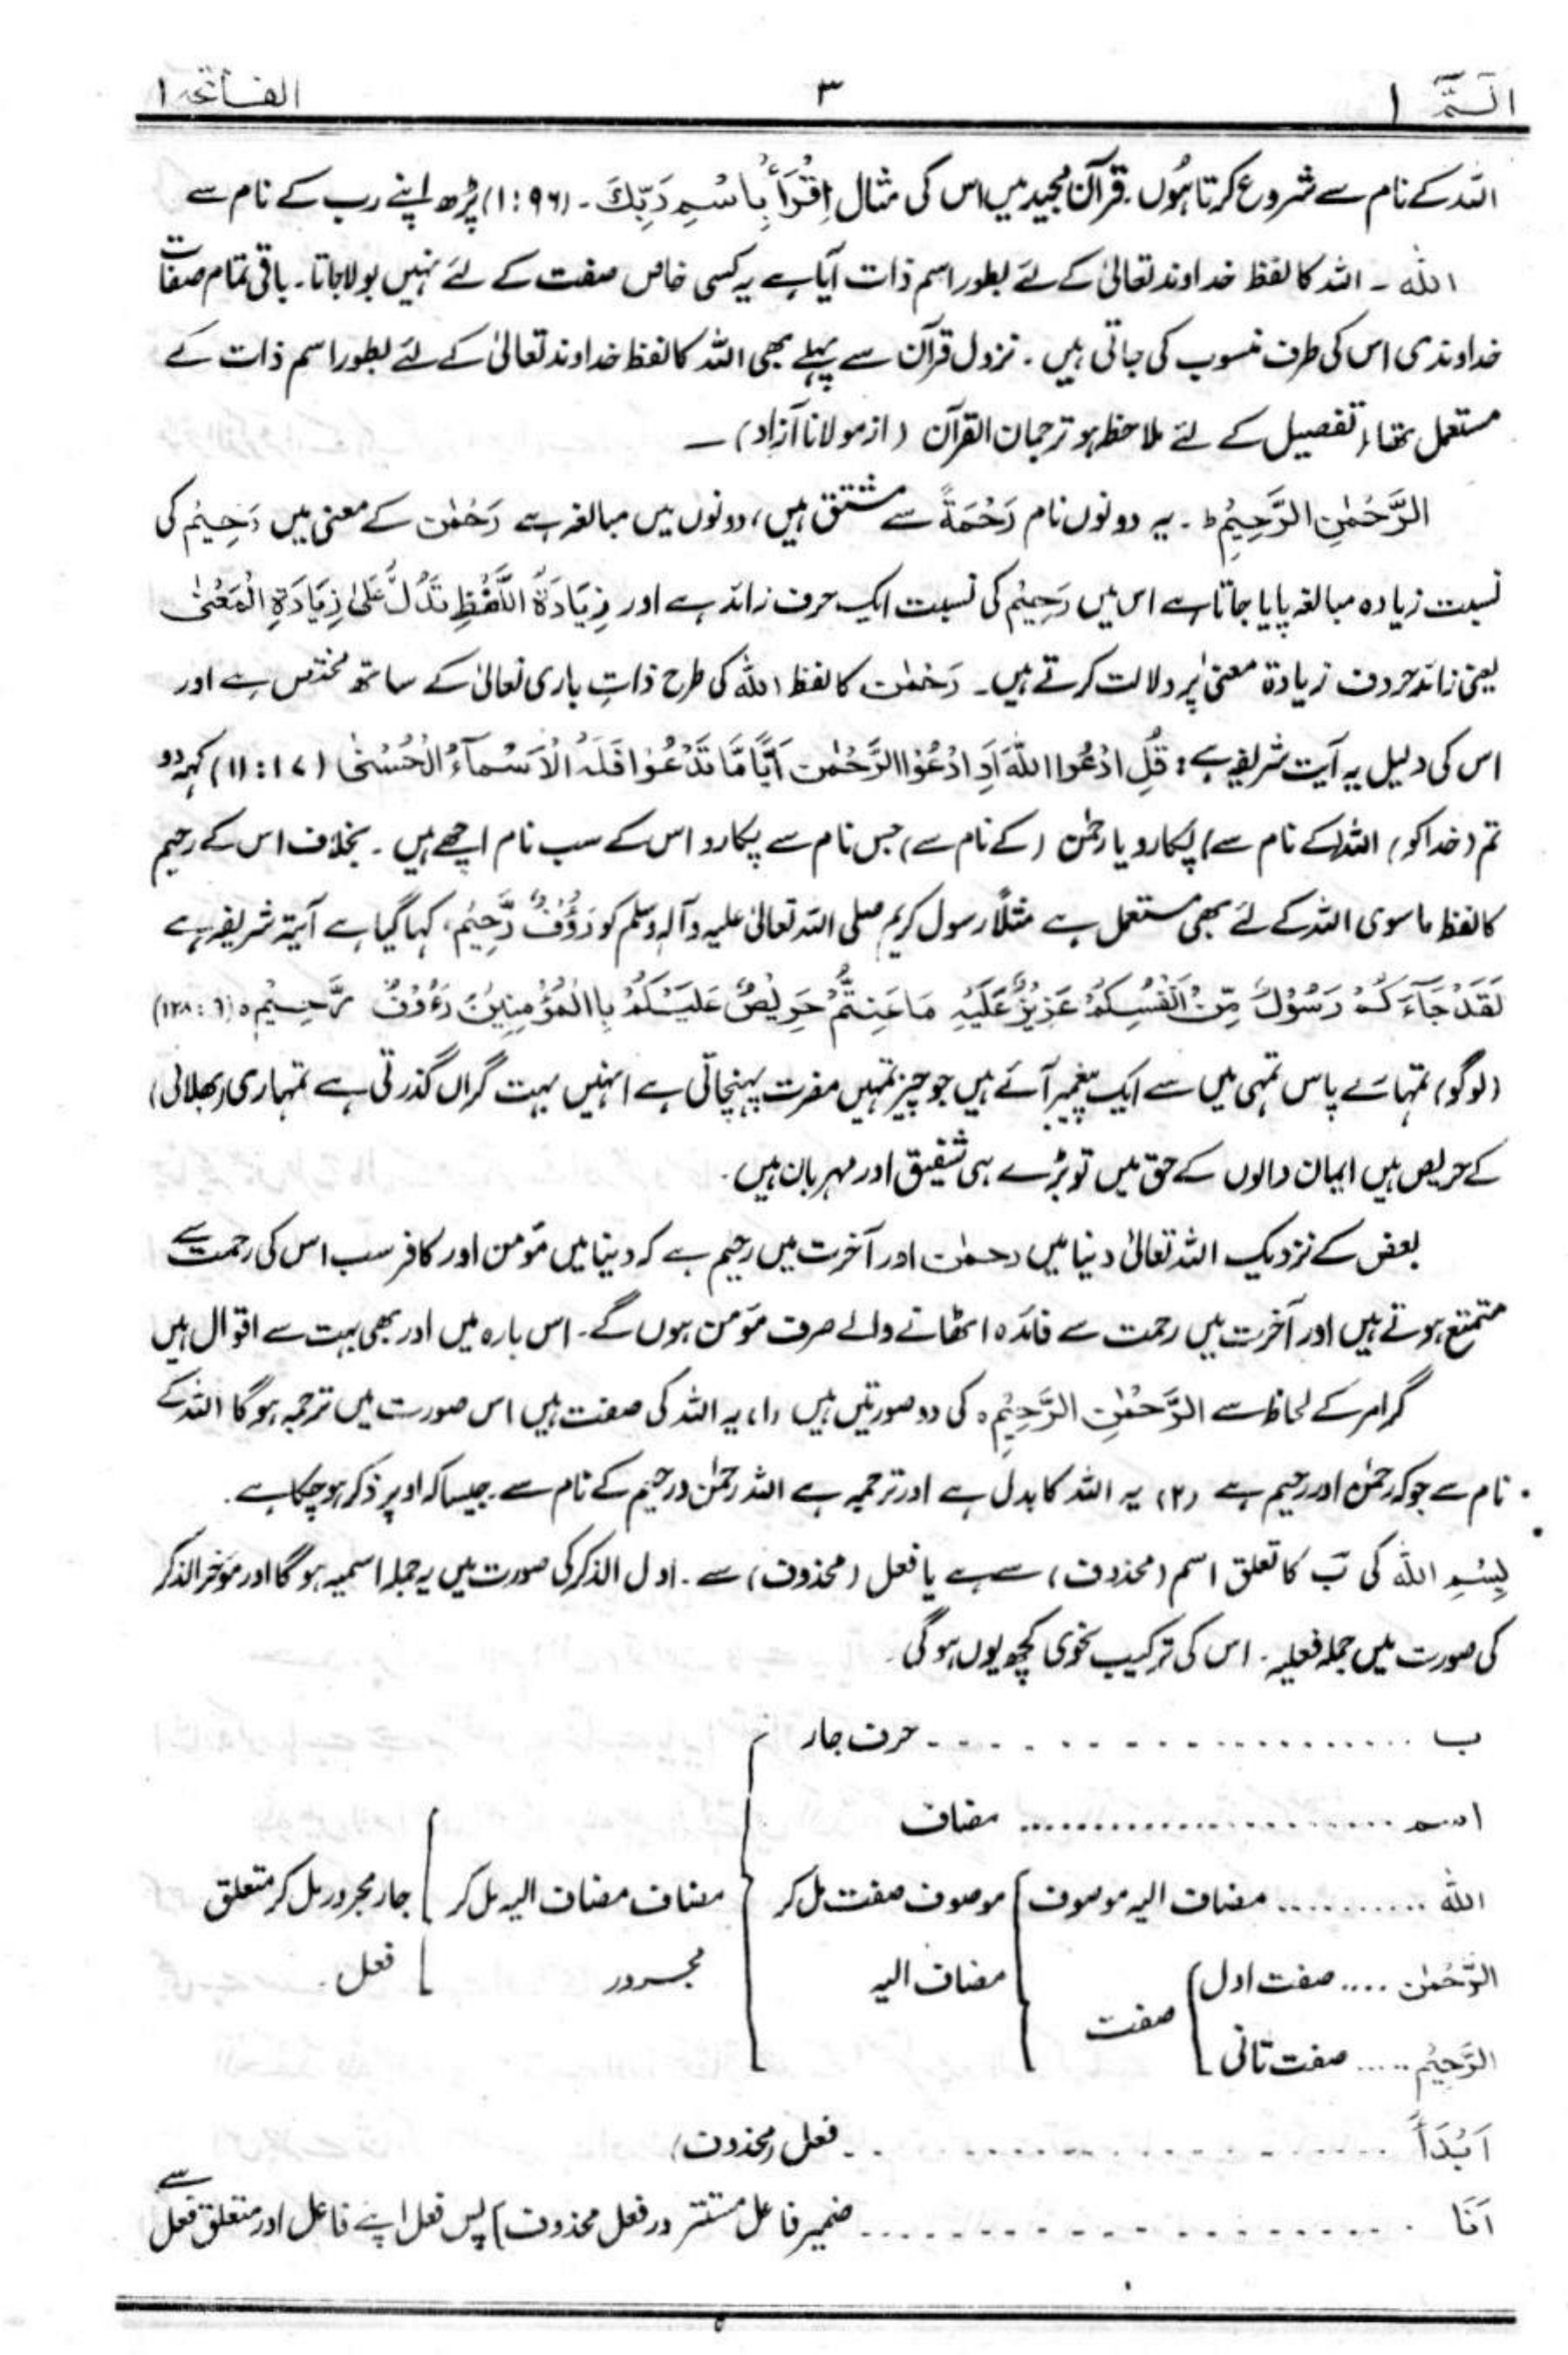 الٓـمّٓ ۱ ۳ الفاتحہ ۱
اللہ کے نام سے شروع کرتا ہوں۔ قرآن مجید میں اس کی مثال اِقْرَأْ بِاسْمِ رَبِّكَ۔ (۹۶:۱) پڑھ اپنے رب کے نام سے
اللہ ۔ اللہ کا لفظ خداوند تعالیٰ کے لئے بطور اسم ذات آیا ہے یہ کسی خاص صفت کے لئے نہیں بولا جاتا۔ باقی تمام صفات
خداوندی اس کی طرف منسوب کی جاتی ہیں۔ نزول قرآن سے پہلے بھی اللہ کا لفظ خداوند تعالیٰ کے لئے بطور اسم ذات کے
مستعمل تھا، تفصیل کے لئے ملاحظہ ہو ترجمان القرآن (از مولانا آزاد) ۔
الرَّحْمٰنِ الرَّحِيْمِ ط ۔ یہ دونوں نام رَحْمَةً سے مشتق ہیں، دونوں میں مبالغہ ہے رَحْمٰن کے معنی میں رَحِيْم کی
نسبت زیادہ مبالغہ پایا جاتا ہے اس میں رَحِيْم کی نسبت ایک حرف زائد ہے اور زِيَادَةُ اللَّفْظِ تَدُلُّ عَلٰى زِيَادَةِ الْمَعْنٰى
یعنی زائد حروف زیادۃ معنیٰ پر دلالت کرتے ہیں۔ رَحْمٰن کا لفظ اللہ کی طرح ذاتِ باری تعالیٰ کے ساتھ مختص ہے اور
اس کی دلیل یہ آیت شریفہ ہے: قُلِ ادْعُوا اللهَ اَوِ ادْعُوا الرَّحْمٰن اَيًّا مَّا تَدْعُوْا فَلَهُ الْاَسْمَآءُ الْحُسْنٰى (۱۷:۱۱) کہہ دو
تم (خدا کو) اللہ (کے نام سے) پکارو یا رحمٰن (کے نام سے) جس نام سے پکارو اس کے سب نام اچھے ہیں۔ بخلاف اس کے رحیم
کا لفظ ماسوی اللہ کے لئے بھی مستعمل ہے مثلاً رسول کریم صلی اللہ تعالیٰ علیہ وآلہ وسلم کو رَؤُفٌ رَّحِيْم، کہا گیا ہے آیۃ شریفہ ہے
لَقَدْ جَآءَكُمْ رَسُوْلٌ مِّنْ اَنْفُسِكُمْ عَزِيْزٌ عَلَيْهِ مَا عَنِتُّمْ حَرِيْصٌ عَلَيْكُمْ بِالْمُؤْمِنِيْنَ رَءُوْفٌ رَّحِيْم ه (۱۲۸:۹)
(لوگو) تمہارے پاس تمہی میں سے ایک پیغمبر آئے ہیں جو چیز تمہیں مضرت پہنچاتی ہے انہیں بہت گراں گذرتی ہے تمہاری (بھلائی)
کے حریص ہیں ایمان والوں کے حق میں تو بڑے ہی شفیق اور مہربان ہیں۔
بعض کے نزدیک اللہ تعالیٰ دنیا میں رحمٰن اور آخرت میں رحیم ہے کہ دنیا میں مومن اور کافر سب اس کی رحمت سے
متمتع ہوتے ہیں اور آخرت میں رحمت سے فائدہ اٹھانے والے صرف مومن ہوں گے۔ اس بارہ میں اور بھی بہت سے اقوال ہیں
گرامر کے لحاظ سے الرَّحْمٰنِ الرَّحِيْمِ ه کی دو صورتیں ہیں (۱) یہ اللہ کی صفت ہیں اس صورت میں ترجمہ ہوگا اللہ کے
نام سے جو کہ رحمٰن اور رحیم ہے (۲) یہ اللہ کا بدل ہے اور ترجمہ ہے اللہ رحمٰن و رحیم کے نام سے۔ جیسا کہ اوپر ذکر ہو چکا ہے۔
بِسْمِ اللہ کی بَ کا تعلق اسم (محذوف) سے ہے یا فعل (محذوف) سے۔ اول الذکر کی صورت میں یہ جملہ اسمیہ ہوگا اور موخر الذکر
کی صورت میں جملہ فعلیہ۔ اس کی ترکیب نحوی کچھ یوں ہوگی۔
ب ...................... حرف جار
اسم ...................... مضاف
اللہ .......... مضاف الیہ موصوف موصوف صفت مل کر مضاف مضاف الیہ مل کر جار مجرور مل کر متعلق
الرَّحْمٰن .... صفت اول مضاف الیہ مجرور فعل۔
صفت
الرَّحِيْم ..... صفت ثانی
اَبْدَأُ ...................... فعل (محذوف)
اَنَا ...................... ضمیر فاعل مستتر در فعل محذوف) پس فعل اپنے فاعل اور متعلق فعل سے